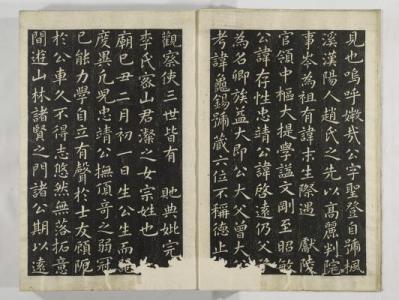 見也嗚呼媺哉公字聖登自號楓
溪漢陽人趙氏之先以高麗判院
事岑為祖有諱末生際遇 獻陵
官領中樞大提學諡文剛至昭敏
公諱存性忠靖公諱啓遠仍父
為名卿族益大即公大父曾大
考諱龜錫號藏六位不稱德止
觀察使三世皆有 貤典妣完
李氏密山君潔之女宗姓也
廟己丑二月初一日生公生而
度異凢兒忠靖公撫頂奇之弱冠
已能力學自立有聲於士友顧阨
於公車久不得志悠然無落拓意
間遊山林諸賢之門諸公期以遠